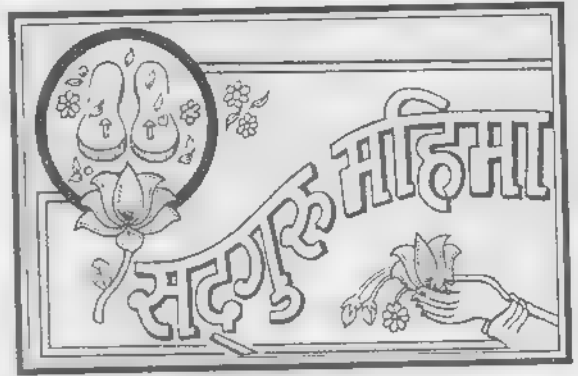 सद्गुरु महिमा